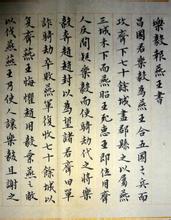 樂毅報燕王書
昌國君樂毅為燕王合五國之兵而
攻齊下七十餘城盡郡縣之以屬燕
三城未下而燕王死惠王即位用齊
人反間疑樂毅而使騎劫代之將樂
毅奔趙趙封以為望諸君齊田單
詐騎劫卒敗燕軍復收七十餘城以
復齊燕王悔懼趙用樂毅乘燕之敝
以伐燕燕王乃使人讓樂毅且謝之